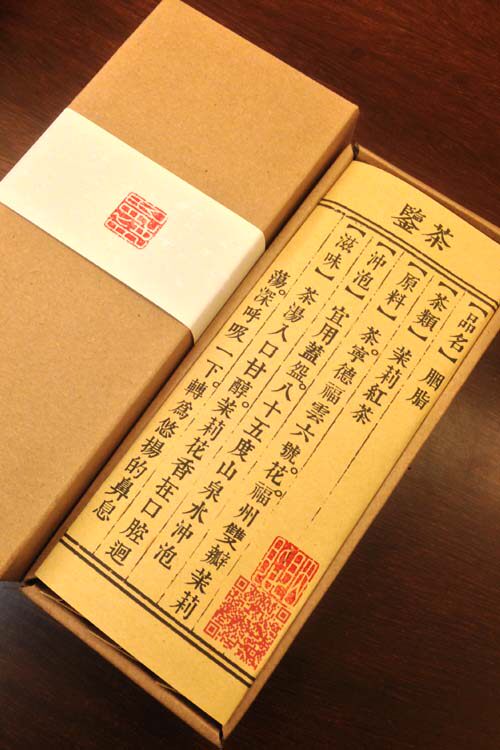 茶鑒
【品名】胭脂
【茶類】茉莉紅茶
【原料】茶。寧德福雲六號。花。福州雙瓣茉莉
【沖泡】宜用蓋盌。八十五度山泉水沖泡
【滋味】茶湯入口甘醇。茉莉花香在口腔迴
蕩。深呼吸一下。轉爲悠楊的鼻息